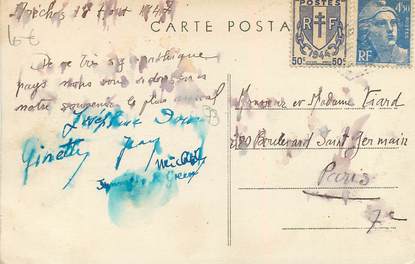 18 Aout 1947
CARTE POSTALE
6€
De ce très sympathique
pays nous vous adressons
notre souvenir le plus amical
Ginette Jean
POSTES
RF
1944
50c 50c
4f50
RF
Monsieur et Madame Viard
280 Boulevard Saint Germain
Paris
7e